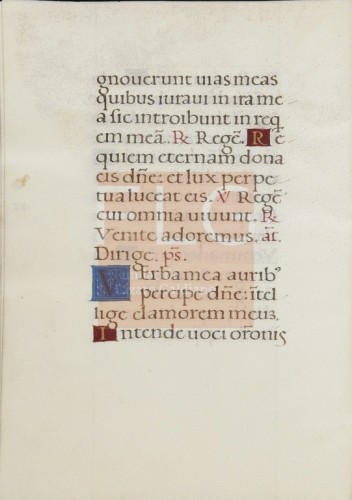 gnoverunt uias meas
quibus iuraui in ira me
a si c introibunt in req
em meā. ℟ Regē. Re
quiem eternam dona
eis dn̄e: et lux perpe
tua luceat eis. ℣ Regē
cui omnia uiuunt. ℟
Venite adoremus. añ.
Dirige. ps̄.
Verba mea auribꝰ
percipe dn̄e: ītel
lige clamorem meuꝫ.
Intende uoci orōnis